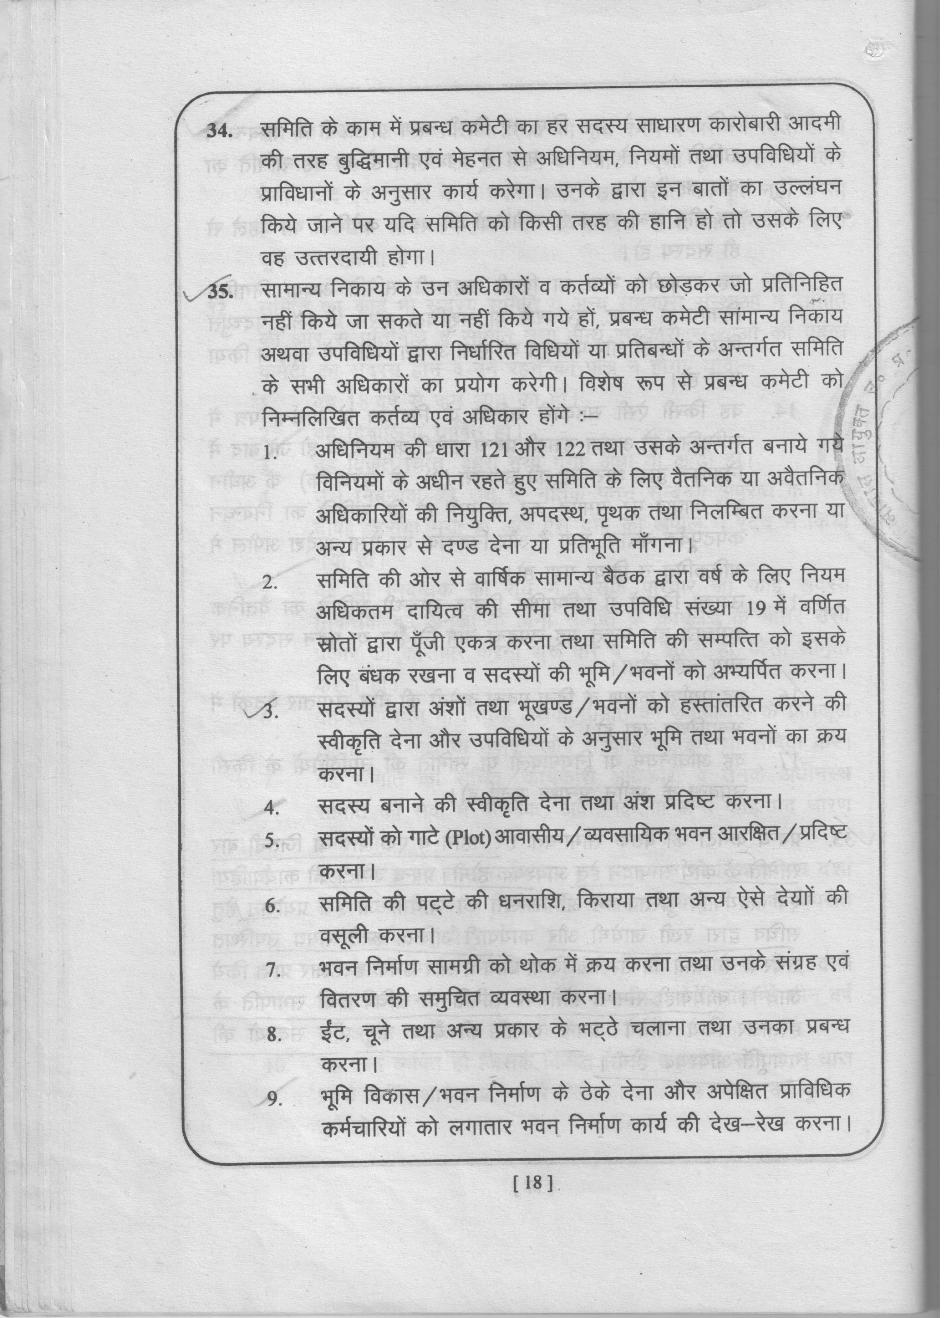 34. समिति के काम में प्रबन्ध कमेटी का हर सदस्य साधारण कारोबारी आदमी
की तरह बुद्धिमानी एवं मेहनत से अधिनियम, नियमों तथा उपविधियों के
प्राविधानों के अनुसार कार्य करेगा। उनके द्वारा इन बातों का उल्लंघन
किये जाने पर यदि समिति को किसी तरह की हानि हो तो उसके लिए
वह उत्तरदायी होगा।
35. सामान्य निकाय के उन अधिकारों व कर्तव्यों को छोड़कर जो प्रतिनिहित
नहीं किये जा सकते या नहीं किये गये हों, प्रबन्ध कमेटी सामान्य निकाय
अथवा उपविधियों द्वारा निर्धारित विधियों या प्रतिबन्धों के अन्तर्गत समिति
के सभी अधिकारों का प्रयोग करेगी। विशेष रूप से प्रबन्ध कमेटी को
निम्नलिखित कर्तव्य एवं अधिकार होंगे :–
1. अधिनियम की धारा 121 और 122 तथा उसके अन्तर्गत बनाये गये
विनियमों के अधीन रहते हुए समिति के लिए वैतनिक या अवैतनिक
अधिकारियों की नियुक्ति, अपदस्थ, पृथक तथा निलम्बित करना या
अन्य प्रकार से दण्ड देना या प्रतिभूति माँगना।
2. समिति की ओर से वार्षिक सामान्य बैठक द्वारा वर्ष के लिए नियम
अधिकतम दायित्व की सीमा तथा उपविधि संख्या 19 में वर्णित
स्रोतों द्वारा पूँजी एकत्र करना तथा समिति की सम्पत्ति को इसके
लिए बंधक रखना व सदस्यों की भूमि/भवनों को अभ्यर्पित करना।
3. सदस्यों द्वारा अंशों तथा भूखण्ड/भवनों को हस्तांतरित करने की
स्वीकृति देना और उपविधियों के अनुसार भूमि तथा भवनों का क्रय
करना।
4. सदस्य बनाने की स्वीकृति देना तथा अंश प्रदिष्ट करना।
5. सदस्यों को गाटे (Plot) आवासीय/व्यवसायिक भवन आरक्षित/प्रदिष्ट
करना।
6. समिति की पट्टे की धनराशि, किराया तथा अन्य ऐसे देयाों की
वसूली करना।
7. भवन निर्माण सामग्री को थोक में क्रय करना तथा उनके संग्रह एवं
वितरण की समुचित व्यवस्था करना।
8. ईंट, चूने तथा अन्य प्रकार के भट्ठे चलाना तथा उनका प्रबन्ध
करना।
9. भूमि विकास/भवन निर्माण के ठेके देना और अपेक्षित प्राविधिक
कर्मचारियों को लगातार भवन निर्माण कार्य की देख–रेख करना।
[ 18 ]